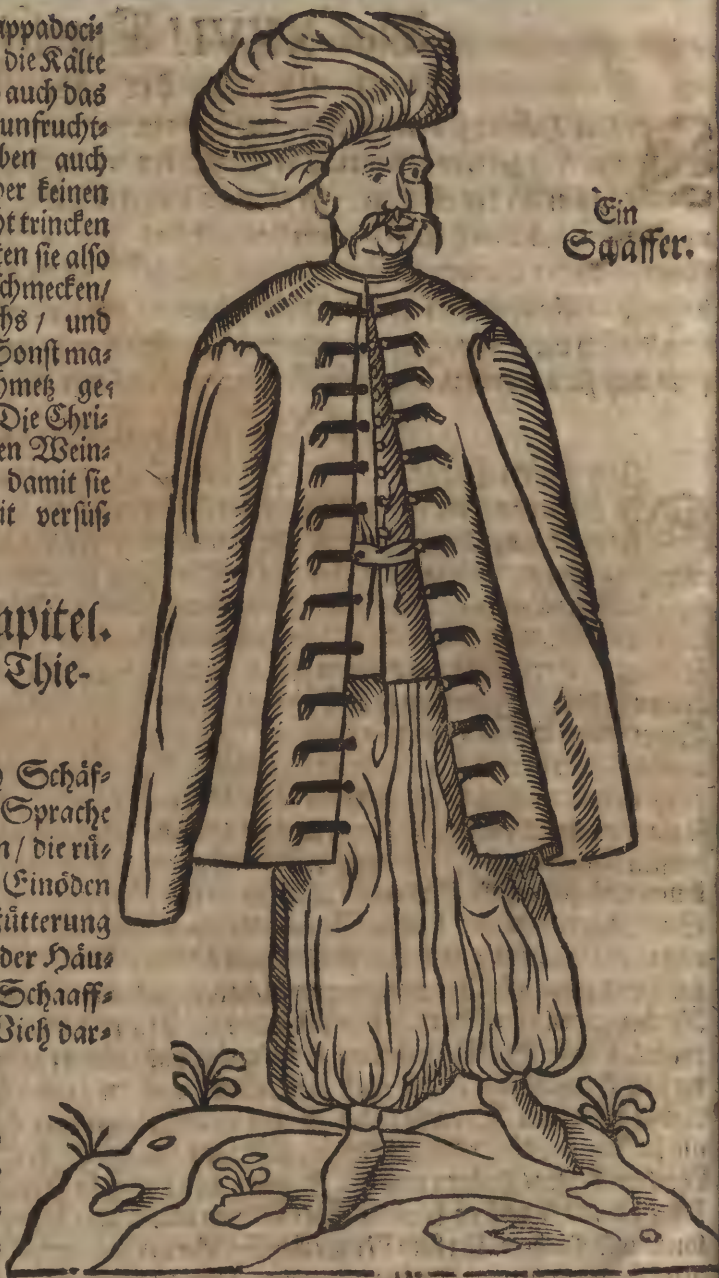 appadoci⸗
die Kälte
auch das
unfrucht⸗
ben auch
er keinen
ht trincken
ten sie also
schmecken/
chs / und
Sonst ma⸗
hmetz ge⸗
Die Chri⸗
en Wein⸗
damit sie
it versüs⸗
apitel.
Thie-
Schäf⸗
Sprache
n / die rü⸗
Einöden
ütterung
der Häu⸗
Schaaff⸗
Vieh dar⸗
Ein
Schäffer.